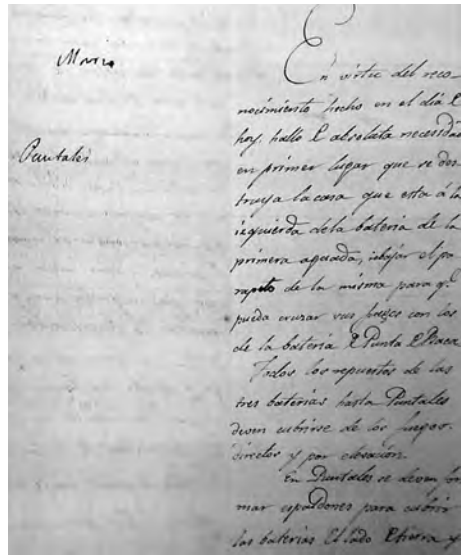 Puntales
En virtud del reco-
nocimiento hecho en el dia de
hoy, hallo de absoluta necesidad
en primer lugar que se des
truya la casa que esta á la
izquierda dela bateria de la
primera aguada, rebajar el pa
rapeto de la misma para q.e
pueda cruzar sus fuegos con los
de la bateria de Punta de Vaca
Todos los repuestos de las
tres baterias hasta Puntales
deven cubrirse de los fuegos
directos y por elevacion.
En Puntales se deven for
mar espaldones para cubrir
las baterias del lado de tierra y